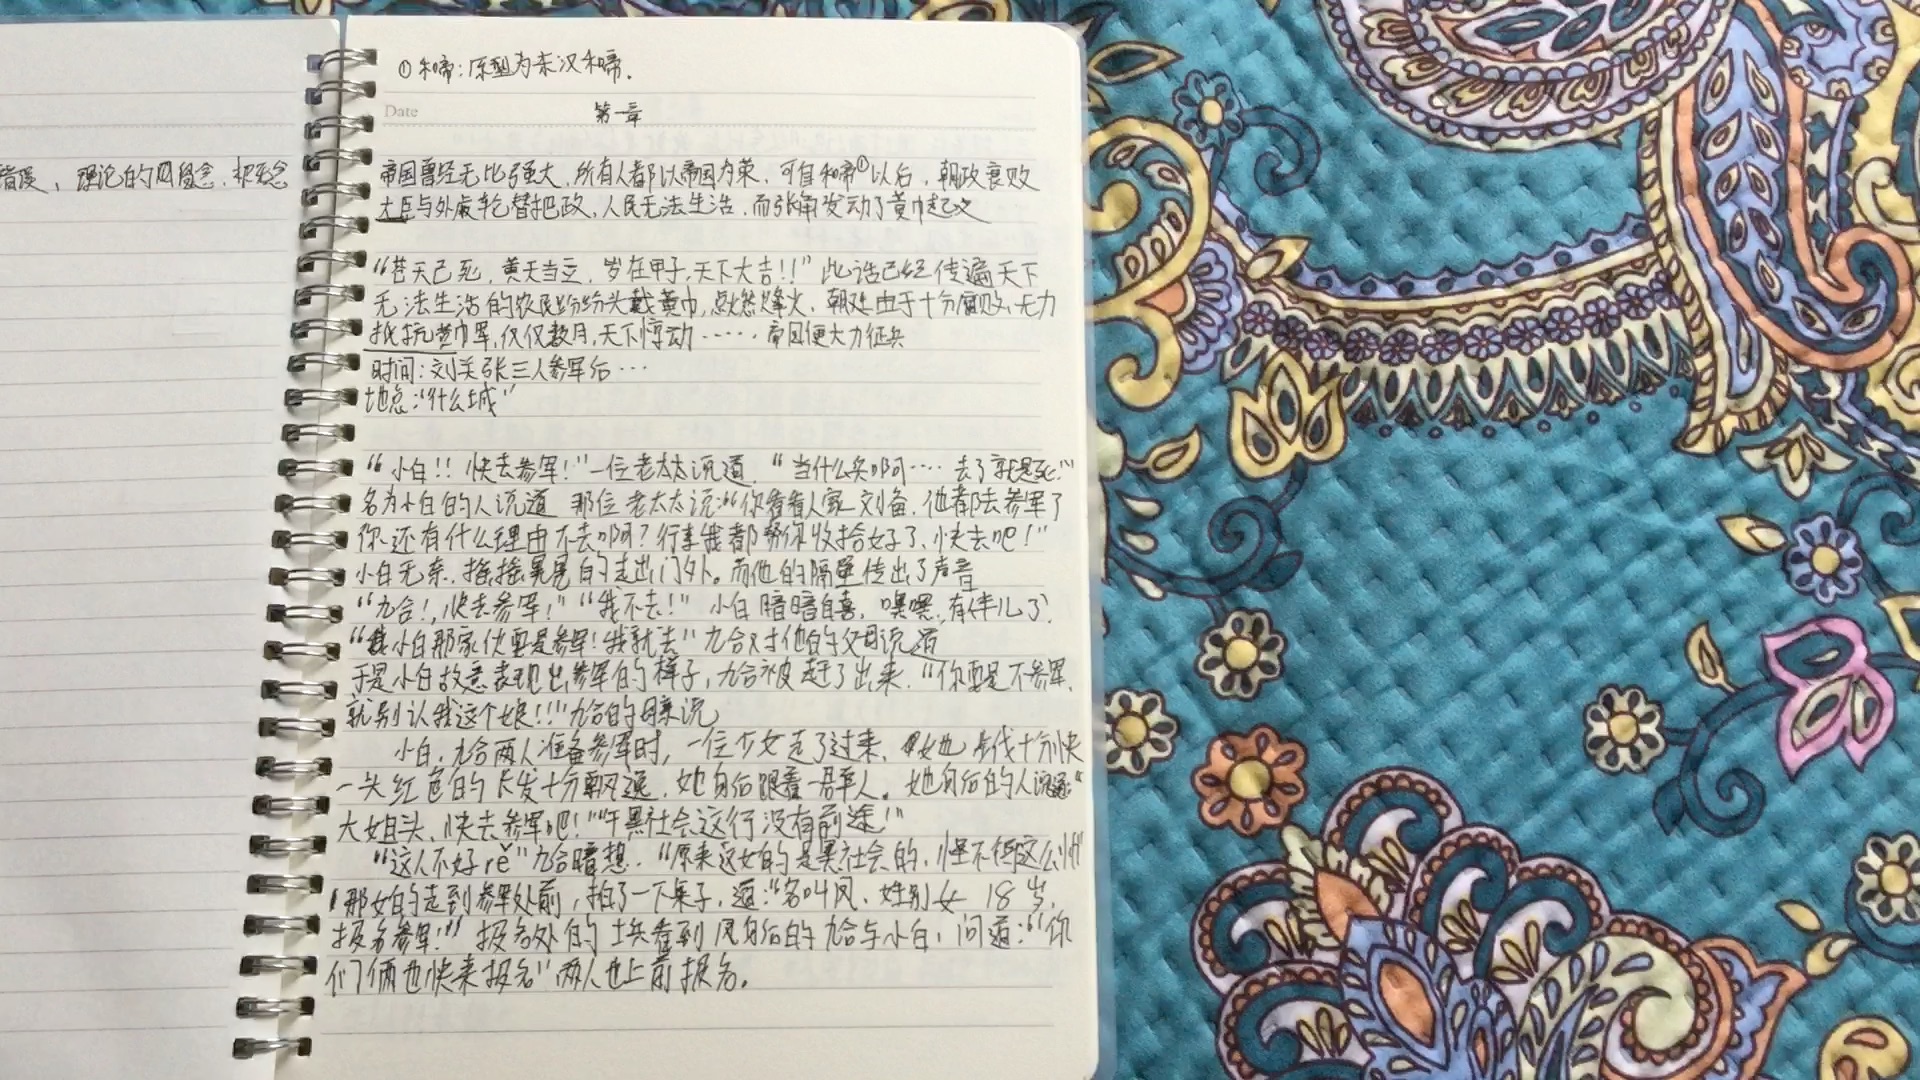 ①和帝:原型为东汉和帝.
Date
第一章
错误,理论的
帝国曾经无比强大,所有人都以帝国为荣,可自和帝①以后,朝政衰败
大臣与外戚轮替把政,人民无法生活,而张角发动了黄巾起义
“苍天已死,黄天当立,岁在甲子,天下大吉!!”此话已经传遍天下
无法生活的农民纷纷头戴黄巾,点燃烽火,朝廷由于十分腐败,无力
抵抗黄巾军,仅仅数月,天下惊动·····帝国便大力征兵
时间:刘关张三人参军后···
地点:“什么城”
“小白!!快去参军!”一位老太太说道.“当什么兵啊····去了就是死!”
名为小白的人说道 那位老太太说:“你看看人家刘备,他都去参军了
你还有什么理由不去啊?行李我都帮你收拾好了,快去吧!”
小白无奈,摇摇晃晃的走出门外。而他的隔壁传出了声音
“九合!,快去参军!”“我不去!”小白暗暗自喜,嘿嘿,有伴儿了,
“小白那家伙要是参军!我就去”九合对他的父母说道
于是小白故意表现出参军的样子,九合被赶了出来.“你要是不参军,
就别认我这个娘!!”九合的母亲说
小白,九合两人准备参军时,一位少女走了过来,她步伐十分快
一头红色的长发十分飘逸,她身后跟着一群人。她身后的人说道:“
大姐头,快去参军吧!”“干黑社会这行没有前途!”
“这人不好rě”九合暗想.“原来这女的是黑社会的,怪不得这么
那女的走到参军处前,拍了一下桌子,道:“名叫凤,姓别女 18岁,
报名参军!”报名处的士兵看到凤身后的九合与小白,问道:“你
们俩也快来报名”两人也上前报名。